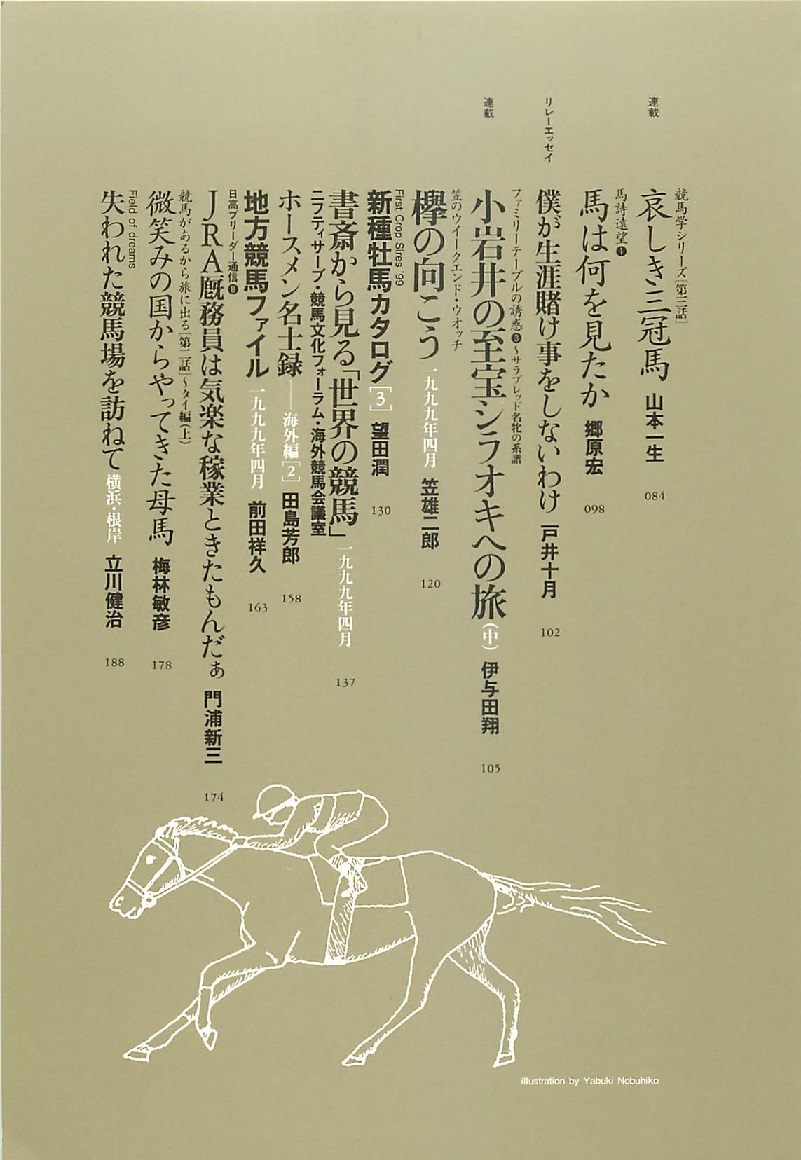 連載
競馬学シリーズ「第三話」
哀しき三冠馬 山本一生 084
馬詩遠望❶
馬は何を見たか 郷原宏 098
リレーエッセイ
僕が生涯賭け事をしないわけ 戸井十月 102
連載
ファミリーテーブルの誘惑❸〜サラブレッド名牝の系譜
小岩井の至宝シラオキへの旅(中) 伊与田翔 105
笠のウイークエンド・ウオッチ
欅の向こう 一九九九年四月 笠雄二郎 120
First Crop Sires '99
新種牡馬カタログ[3] 望田潤 130
書斎から見る「世界の競馬」 一九九九年四月 137
ニフティサーブ・競馬文化フォーラム・海外競馬会議室
ホースメン名士録──海外編[2] 田島芳郎 158
地方競馬ファイル 一九九九年四月 前田祥久 163
日高ブリーダー通信
JRA厩務員は気楽な稼業ときたもんだぁ 門浦新三 174
競馬があるから旅に出る「第二話」〜タイ編(上)
微笑みの国からやってきた母馬 梅林敏彦 178
Field of dreams
失われた競馬場を訪ねて 横浜・根岸 立川健治 188
illustration by Yabuki Nobuhiko